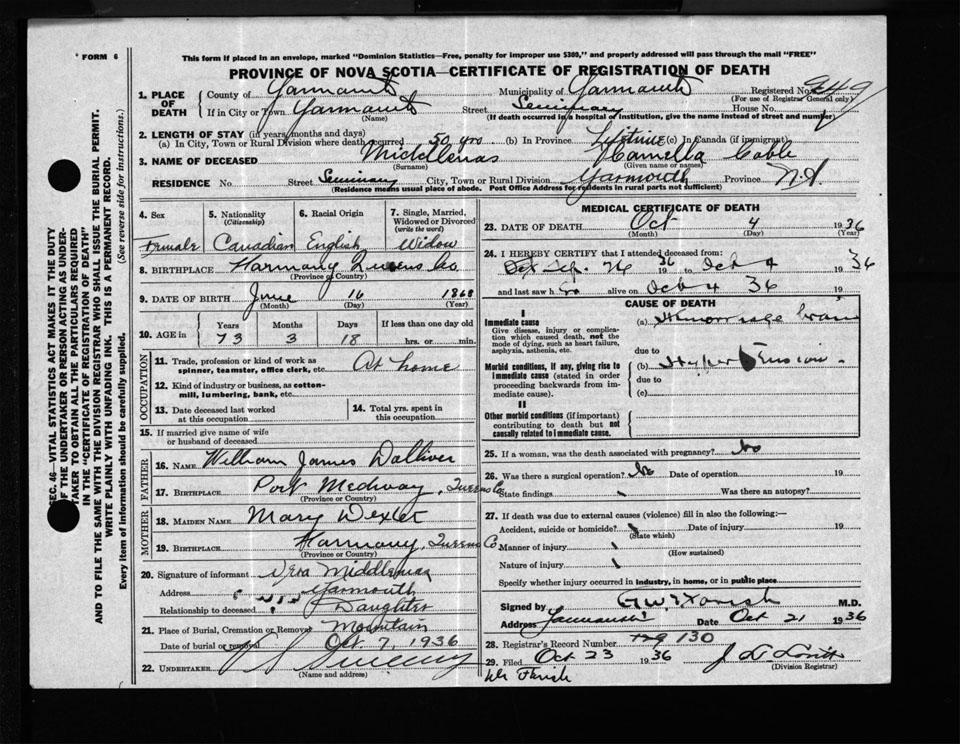 FORM 6
This form if placed in an envelope, marked "Dominion Statistics—Free, penalty for improper use $300," and properly addressed will pass through the mail "FREE"
PROVINCE OF NOVA SCOTIA—CERTIFICATE OF REGISTRATION OF DEATH
1. PLACE OF DEATH
County of Yarmouth
Municipality of Yarmouth
Registered No.
(For use of Registrar General only)
If in City or Town Yarmouth
(Name)
Street Seminary
House No.
(If death occurred in a hospital or institution, give the name instead of street and number)
2. LENGTH OF STAY (in years, months and days)
(a) In City, Town or Rural Division where death occurred 50 yrs (b) In Province Lifetime (c) In Canada (if immigrant)
3. NAME OF DECEASED Middlemas
(Surname)
Cable
(Given name or names)
RESIDENCE No. Street Seminary City, Town or Rural Division Yarmouth Province N.S.
(Residence means usual place of abode. Post Office Address for residents in rural parts not sufficient)
4. Sex
Female
5. Nationality
(Citizenship)
Canadian
6. Racial Origin
English
7. Single, Married, Widowed or Divorced
(write the word)
Widow
8. BIRTHPLACE Harmony Queens Co
(Province or Country)
9. DATE OF BIRTH June 16 1863
(Month) (Day) (Year)
10. AGE in
Years Months Days If less than one day old
73 3 18 hrs. or min.
OCCUPATION
11. Trade, profession or kind of work as spinner, teamster, office clerk, etc. At home
12. Kind of industry or business, as cotton-mill, lumbering, bank, etc.
13. Date deceased last worked at this occupation
14. Total yrs. spent in this occupation
15. If married give name of wife or husband of deceased
FATHER
16. NAME William James Dolliver
17. BIRTHPLACE Port Medway, Queens Co
(Province or Country)
MOTHER
18. MAIDEN NAME Mary Dexter
19. BIRTHPLACE Harmony, Queens Co.
(Province or Country)
20. Signature of informant Vera Middlemas
Address Yarmouth
N.S.
Relationship to deceased Daughter
21. Place of Burial, Cremation or Removal Mountain
Date of burial or removal Oct. 7, 1936
22. UNDERTAKER Sweeny
(Name and address)
MEDICAL CERTIFICATE OF DEATH
23. DATE OF DEATH Oct 4 1936
(Month) (Day) (Year)
24. I HEREBY CERTIFY that I attended deceased from:
26 1936 to Oct 4 1936
and last saw h alive on Oct 4 36 19
CAUSE OF DEATH
I
Immediate cause
Give disease, injury or complication which caused death, not the mode of dying, such as heart failure, asphyxia, asthenia, etc.
(a) Hemorrage brain
due to
Morbid conditions, if any, giving rise to immediate cause (stated in order proceeding backwards from immediate cause).
(b) Hypertension
due to
(c)
II
Other morbid conditions (if important) contributing to death but not causally related to immediate cause.
25. If a woman, was the death associated with pregnancy? No
26. Was there a surgical operation? No Date of operation 19
State findings Was there an autopsy?
27. If death was due to external causes (violence) fill in also the following:—
Accident, suicide or homicide? Date of injury 19
(State which)
Manner of injury
(How sustained)
Nature of injury
Specify whether injury occurred in industry, in home, or in public place
Signed by M.D.
Address Yarmouth Date Oct 21 1936
28. Registrar's Record Number 130
29. Filed Oct 23 1936
(Division Registrar)
SEC. 46—VITAL STATISTICS ACT MAKES IT THE DUTY OF THE UNDERTAKER OR PERSON ACTING AS UNDERTAKER TO OBTAIN ALL THE PARTICULARS REQUIRED IN THE "CERTIFICATE OF REGISTRATION OF DEATH" AND TO FILE THE SAME WITH THE DIVISION REGISTRAR WHO SHALL ISSUE THE BURIAL PERMIT.
WRITE PLAINLY WITH UNFADING INK. THIS IS A PERMANENT RECORD.
Every item of information should be carefully supplied. (See reverse side for instructions.)